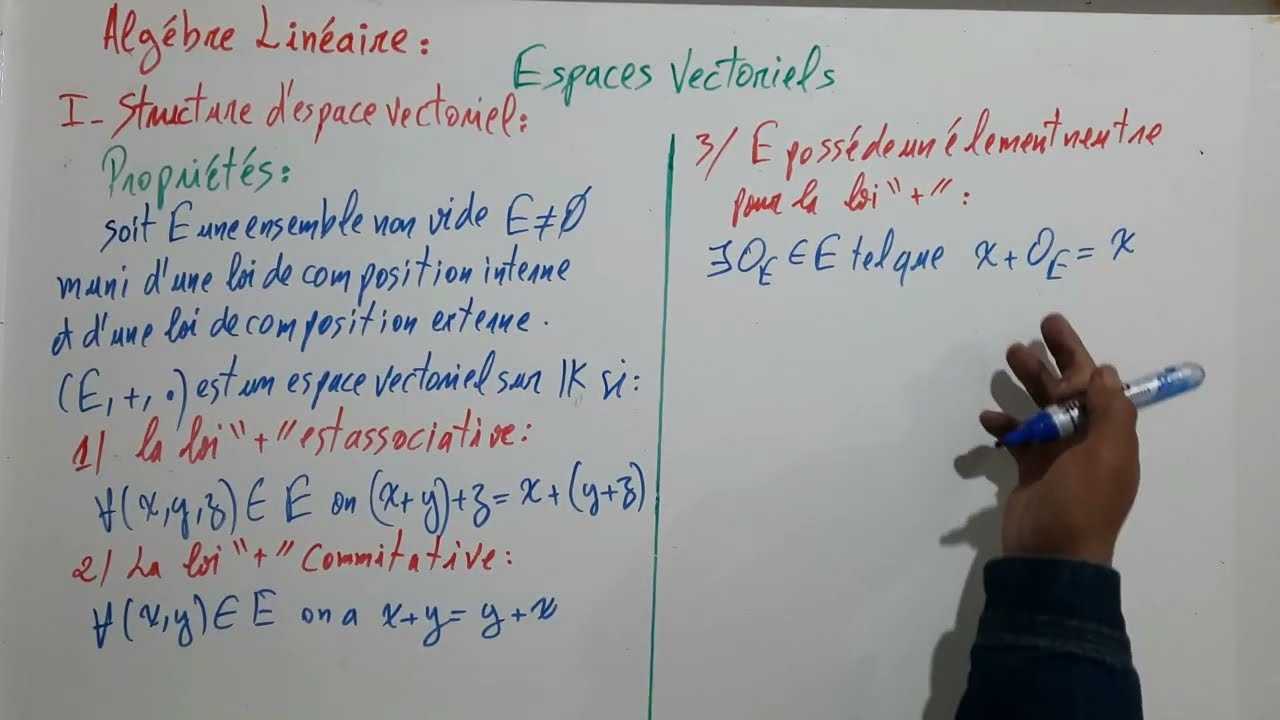 Algébre Linéaire:
Espaces Vectoriels
I- Structure d'espace vectoriel:
Propriétés:
soit E une ensemble non vide E≠∅
muni d'une loi de composition interne
et d'une loi de composition externe.
(E,+,.) est un espace vectoriel sur IK si:
1/ la loi "+" est associative:
∀(x,y,z)∈ E on (x+y)+z = x+(y+z)
2/ La loi "+" Commitative:
∀(x,y)∈ E on a x+y= y+x
3/ E posséde un élement neutre
pour la loi "+":
∃O_E ∈ E tel que x+O_E = x